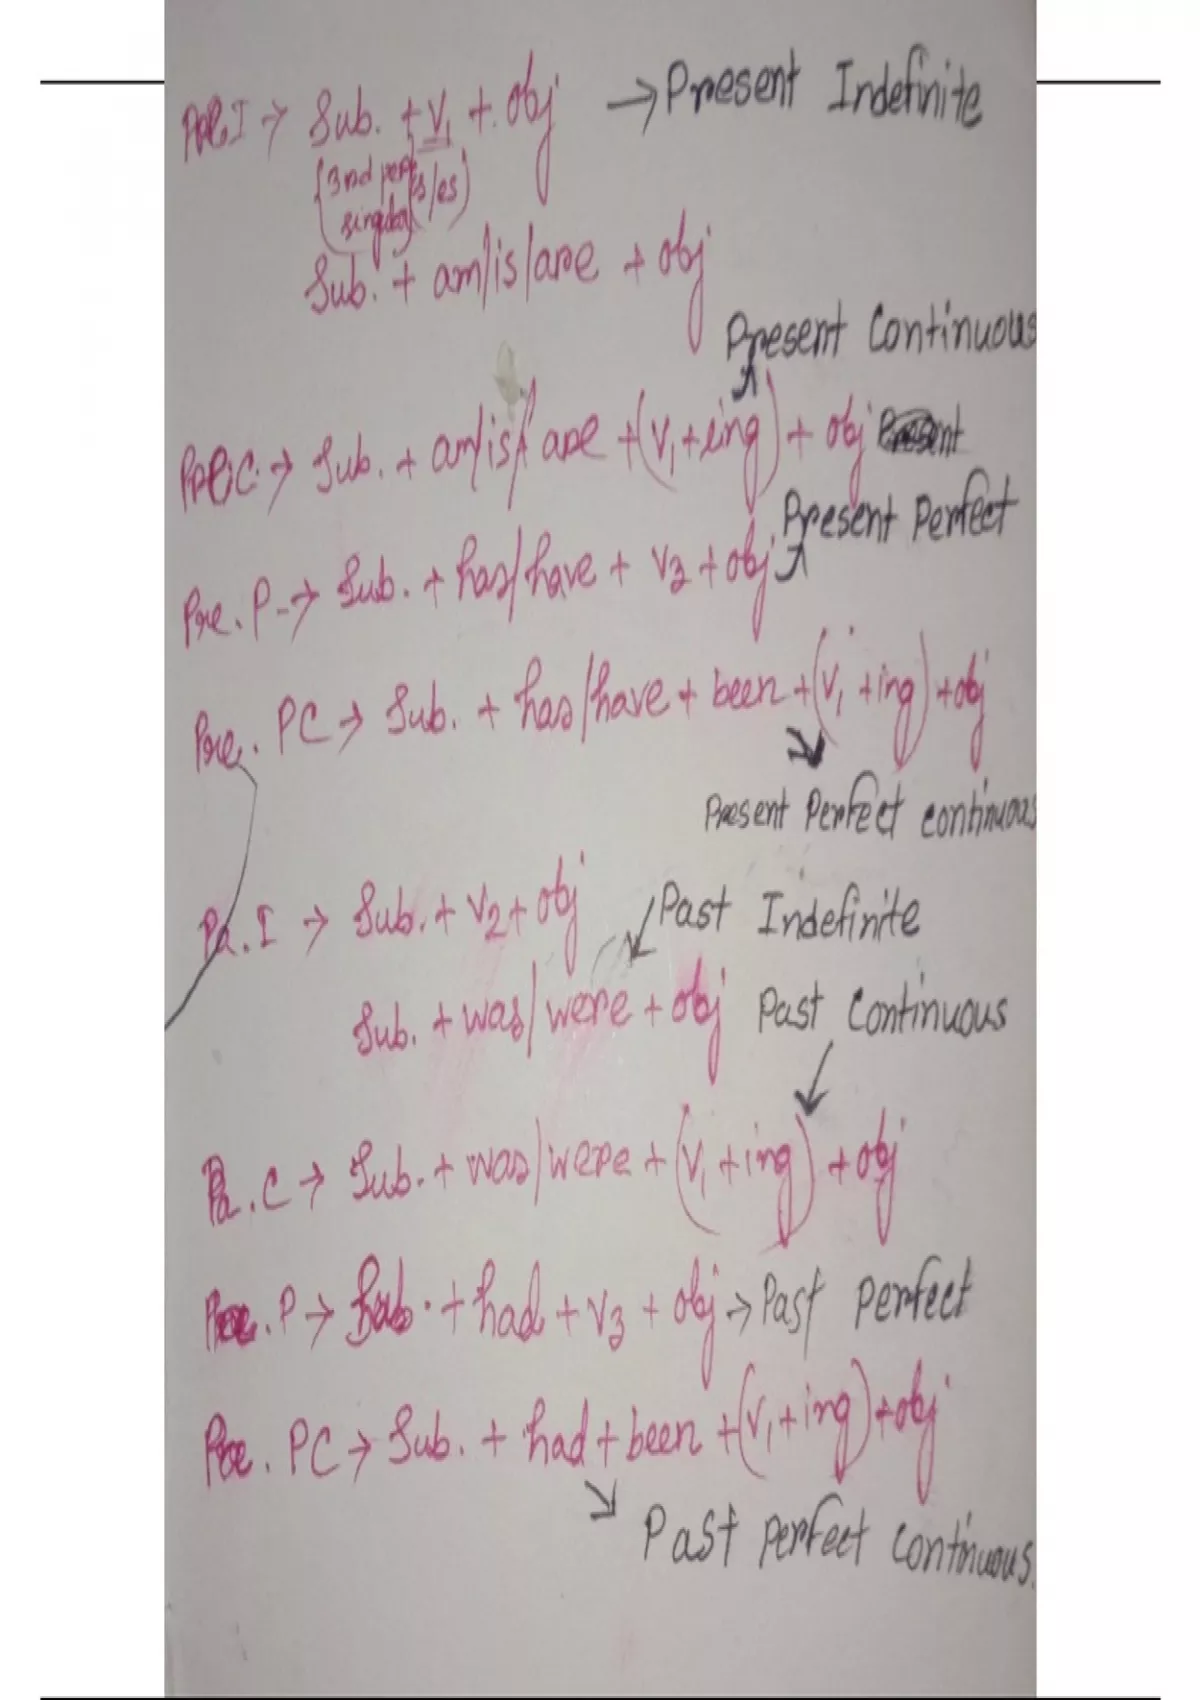 Pre.I → Sub. + V1 + obj → Present Indefinite
(3nd per s/es)
Sub. + am/is/are + obj
Present Continuous
Pre.C. → Sub. + am/is/are + (V1+ing) + obj Present
Present Perfect
Pre. P → Sub. + has/have + V3 + obj
Pre. PC → Sub. + has/have + been + (V1 +ing) + obj
Present Perfect continuous
Pa.I → Sub. + V2 + obj
Past Indefinite
Sub. + was/were + obj Past Continuous
Pa.C → Sub. + was/were + (V1 +ing) + obj
P → Sub. + had + V3 + obj → Past Perfect
PC → Sub. + had + been + (V1+ing) + obj
Past perfect continuous.